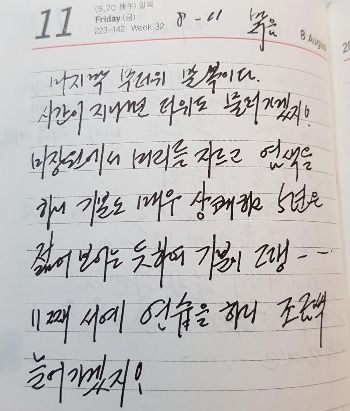 11
(6.20 庚午) 말복
Friday (금)
223-142 Week 32
8-11 맑음
8 August
마지막 무더위 말복이다.
시간이 지나면 더위도 물러가겠지!
미장원에서 머리를 자르고 염색을
하니 기분도 매우 상쾌하고 5년은
젊어 보이는 듯하여 기분이 그냥 - - -
11째 서예 연습을 하니 조금씩
늘어가겠지!